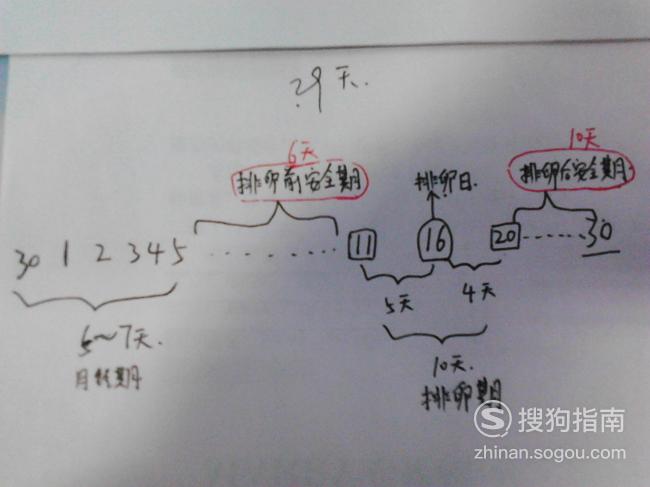 29天.
6天
排卵前安全期
排卵日.
10天
排卵后安全期
30 1 2 3 4 5 ........ 11 16 20 ...... 30
5天 4天
5~7天.
月经期
10天.
排卵期
搜狗指南
zhinan.sogou.com